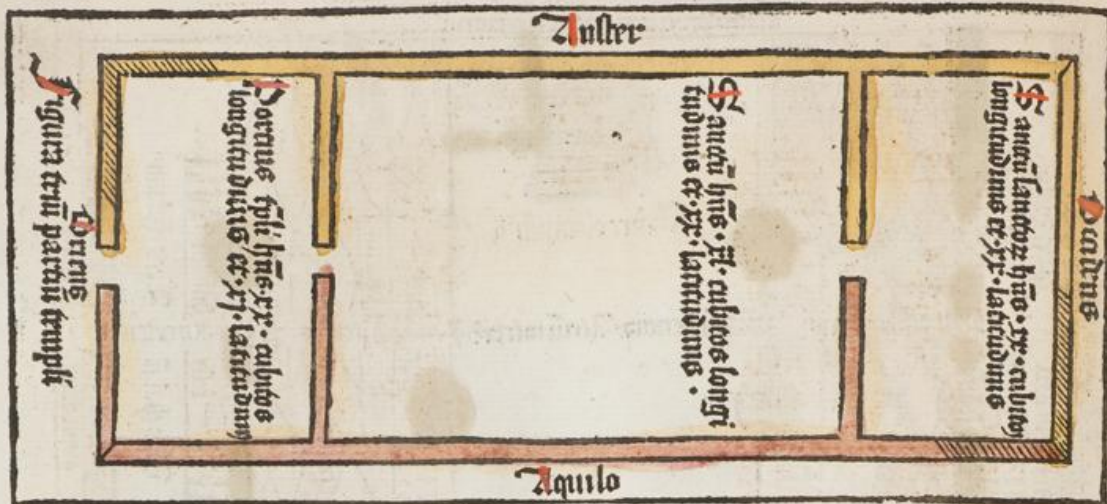 Auster
Figura triū partiū templi
Oriens
Porticus tp̄li hn̄s .xx. cubitos
longitudinis et .xj. latitudinis
Sanctū hn̄s .xl. cubitos longi
tudinis et .xx. latitudinis .
Sanctū sanctoꝝ hn̄s .xx. cubitos
longitudinis et .xx. latitudinis
Aquilo